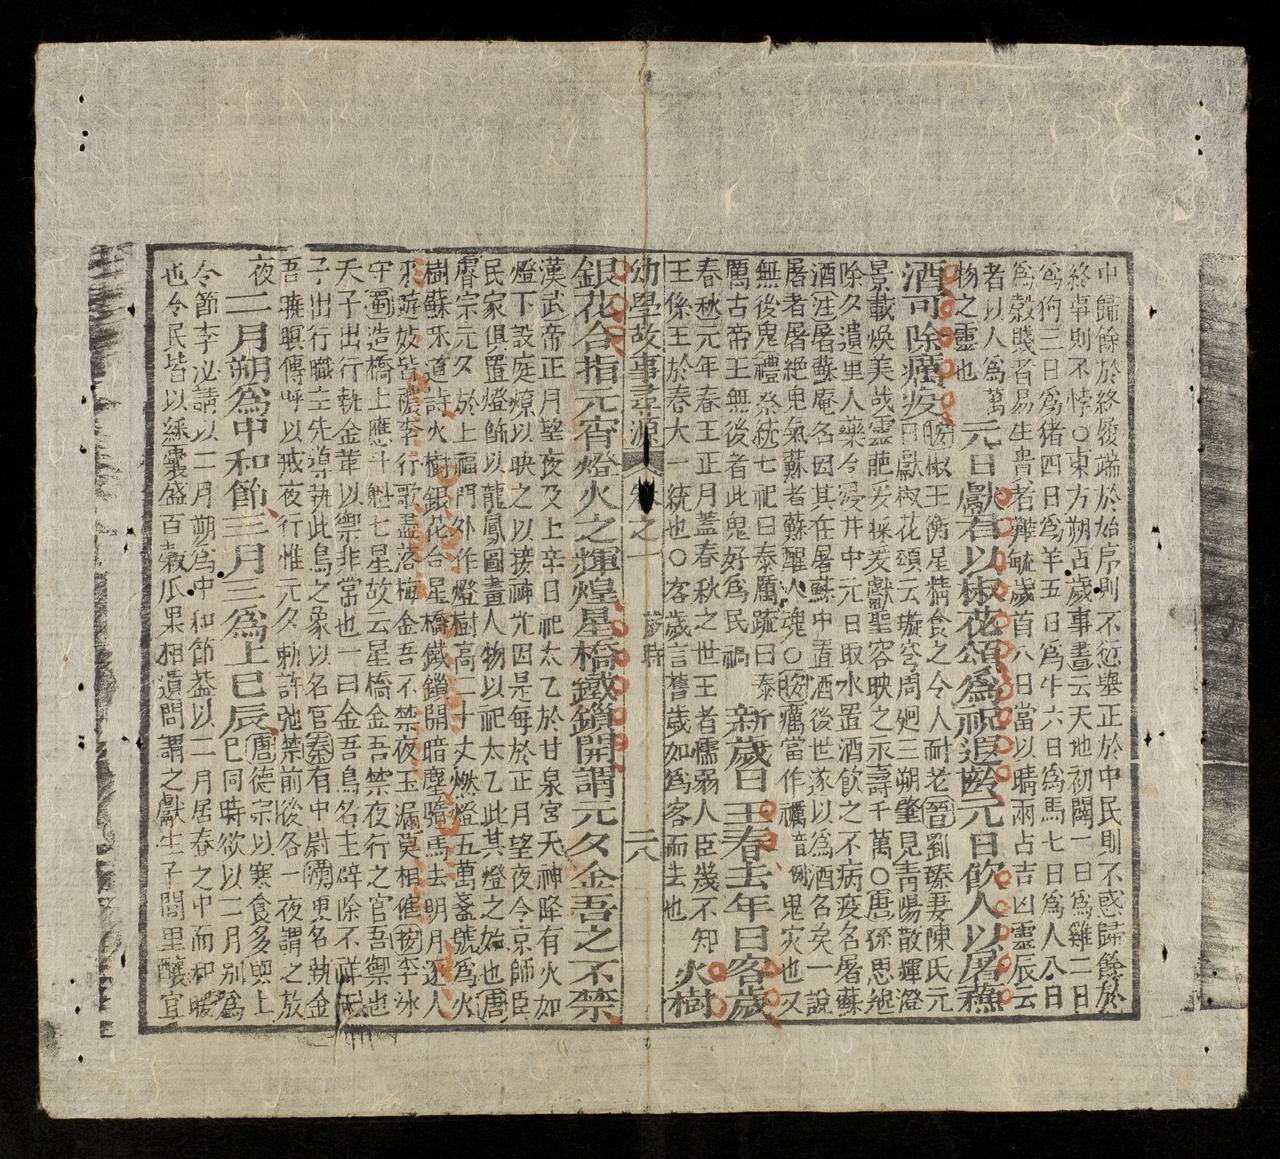 中歸餘於終履端於始序則不愆舉正於中民則不惑歸餘於
終事則不悖○東方朔占歲事畫云天地初闢一日爲雞二日
爲狗三日爲猪四日爲羊五日爲牛六日爲馬七日爲人八日
爲穀賤者易生貴者難毓歲首八日當以晴雨占吉凶靈辰云
者以人爲萬
物之靈也
元日獻君以椒花頌爲祝遐齡元日飮人以屠蘇
酒可除癘疫
椒王衡星精食之令人耐老晉劉瑧妻陳氏元
日獻椒花頌云璇穹周廻三朔肇見靑陽散輝澄
景載煥美哉靈葩爰採爰獻聖容映之永壽千萬○唐孫思邈
除夕遺里人藥令浸井中元日取水置酒飮之不病疫名屠蘇
酒注屠蘇庵名因其在屠蘇中置酒後世遂以爲酒名矣一說
屠者屠絶鬼氣蘇者蘇醒人魂○按癘當作禲音例鬼灾也又
無後鬼禮祭統七祀曰泰厲䟽曰泰
厲古帝王無後者此鬼好爲民禍
新歲曰王春去年曰客歲
春秋元年春王正月蓋春秋之世王者懦弱人臣幾不知
王係王於春大一統也○客歲言舊歲如爲客而去也
火樹
幼學故事尋源 卷之一 歲時 二八
銀花合指元宵燈火之輝煌星橋鐵鎖開謂元夕金吾之不禁
漢武帝正月望夜及上辛日祀太乙於甘泉宮天神降有火如
燈下設庭燎以映之以接神光因是每於正月望夜令京師臣
民家俱置燈飾以龍鳳圖畫人物以祀太乙此其燈之始也唐
睿宗元夕於上福門外作燈樹高二十丈燃燈五萬盞號爲火
樹蘇味道詩火樹銀花合星橋鐵鎖開暗塵隨馬去明月逐人
來遊妓皆穠李行歌盡落梅金吾不禁夜玉漏莫相催按李冰
守蜀造橋上應斗魁七星故云星橋金吾禁夜行之官吾禦也
天子出行執金革以禦非常也一曰金吾鳥名主辟除不祥天
子出行職主先導執此鳥之象以名官秦有中尉漢更名執金
吾曉暝傳呼以戒夜行惟元夕勅許弛禁前後各一夜謂之放
夜
二月朔爲中和節三月三爲上巳辰
唐德宗以寒食多與上
巳同時欲以二月別爲
令節李泌請以二月朔爲中和節蓋以二月居春之中而和暖
也令民皆以綵囊盛百穀瓜果相遺問謂之獻生子閭里釀宜